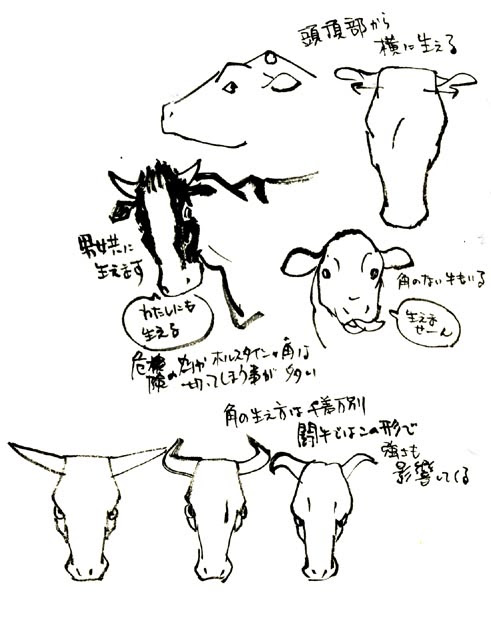 頭頂部から
横に生える
男女共に
生えます
わたしにも
生える
角のない牛もいる
生えま
せーん
危険
ホルスタインの角は
切ってしまう事が多い
角の生え方は千差万別
闘牛ではこの形で
強さも
影響してくる